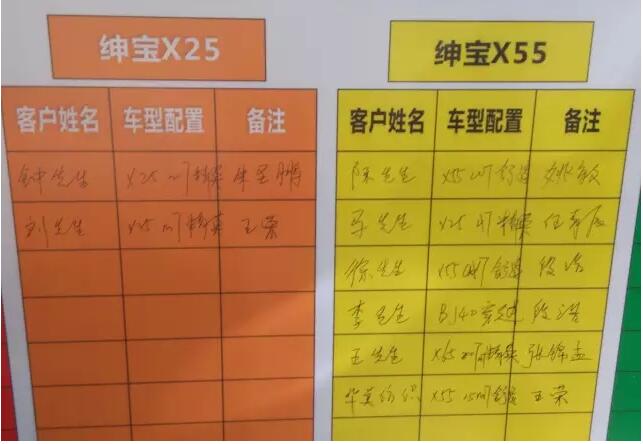 绅宝X25
客户姓名 车型配置 备注
钟先生 X25 MT精英
刘先生 X25 MT精英 王荣
绅宝X55
客户姓名 车型配置 备注
陈先生 X55 舒适 姚敏
先生 X25 MT精英
徐先生 X55 舒适 段浩
李先生 BJ40 段浩
王先生 X65 MT精英 张锦孟
X55 王荣